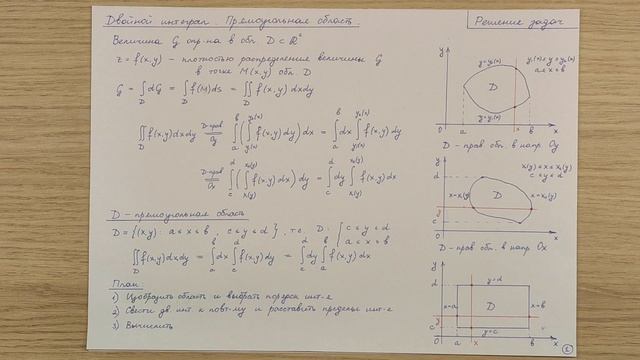 Двойной интеграл. Прямоугольная область.
Решение задач
Величина G опр-на в обл. D ⊂ ℝ²
z = f(x,y) – плотностью распределения величины G
в точке M(x,y) обл. D
G = ∫_D dG = ∫_D f(M)ds = ∬_D f(x,y)dxdy
∬_D f(x,y)dxdy = (D-прав Oy) ∫_a^b (∫_{y₁(x)}^{y₂(x)} f(x,y)dy)dx = ∫_a^b dx ∫_{y₁(x)}^{y₂(x)} f(x,y)dy
= (D-прав Ox) ∫_c^d (∫_{x₁(y)}^{x₂(y)} f(x,y)dx)dy = ∫_c^d dy ∫_{x₁(y)}^{x₂(y)} f(x,y)dx
D – прямоугольная область
D = {(x,y): a ≤ x ≤ b, c ≤ y ≤ d}, т.е. D: { c ≤ y ≤ d
a ≤ x ≤ b
∬_D f(x,y)dxdy = ∫_a^b dx ∫_c^d f(x,y)dy = ∫_c^d dy ∫_a^b f(x,y)dx
План:
1) Изобразить область и выбрать порядок инт-я
2) Свести дв. инт. к повт-му и расставить пределы инт-я
3) Вычислить
y
y=y₂(x)
y₁(x) ≤ y ≤ y₂(x)
a ≤ x ≤ b
D
y=y₁(x)
0 a x b x
D – прав. обл. в напр. Oy
y
x₁(y) ≤ x ≤ x₂(y)
c ≤ y ≤ d
d
x=x₁(y) D x=x₂(y)
y
c
0 x
D – прав. обл. в напр. Ox
y
d y=d
x=a D x=b
y
c y=c
0 a x b x
1